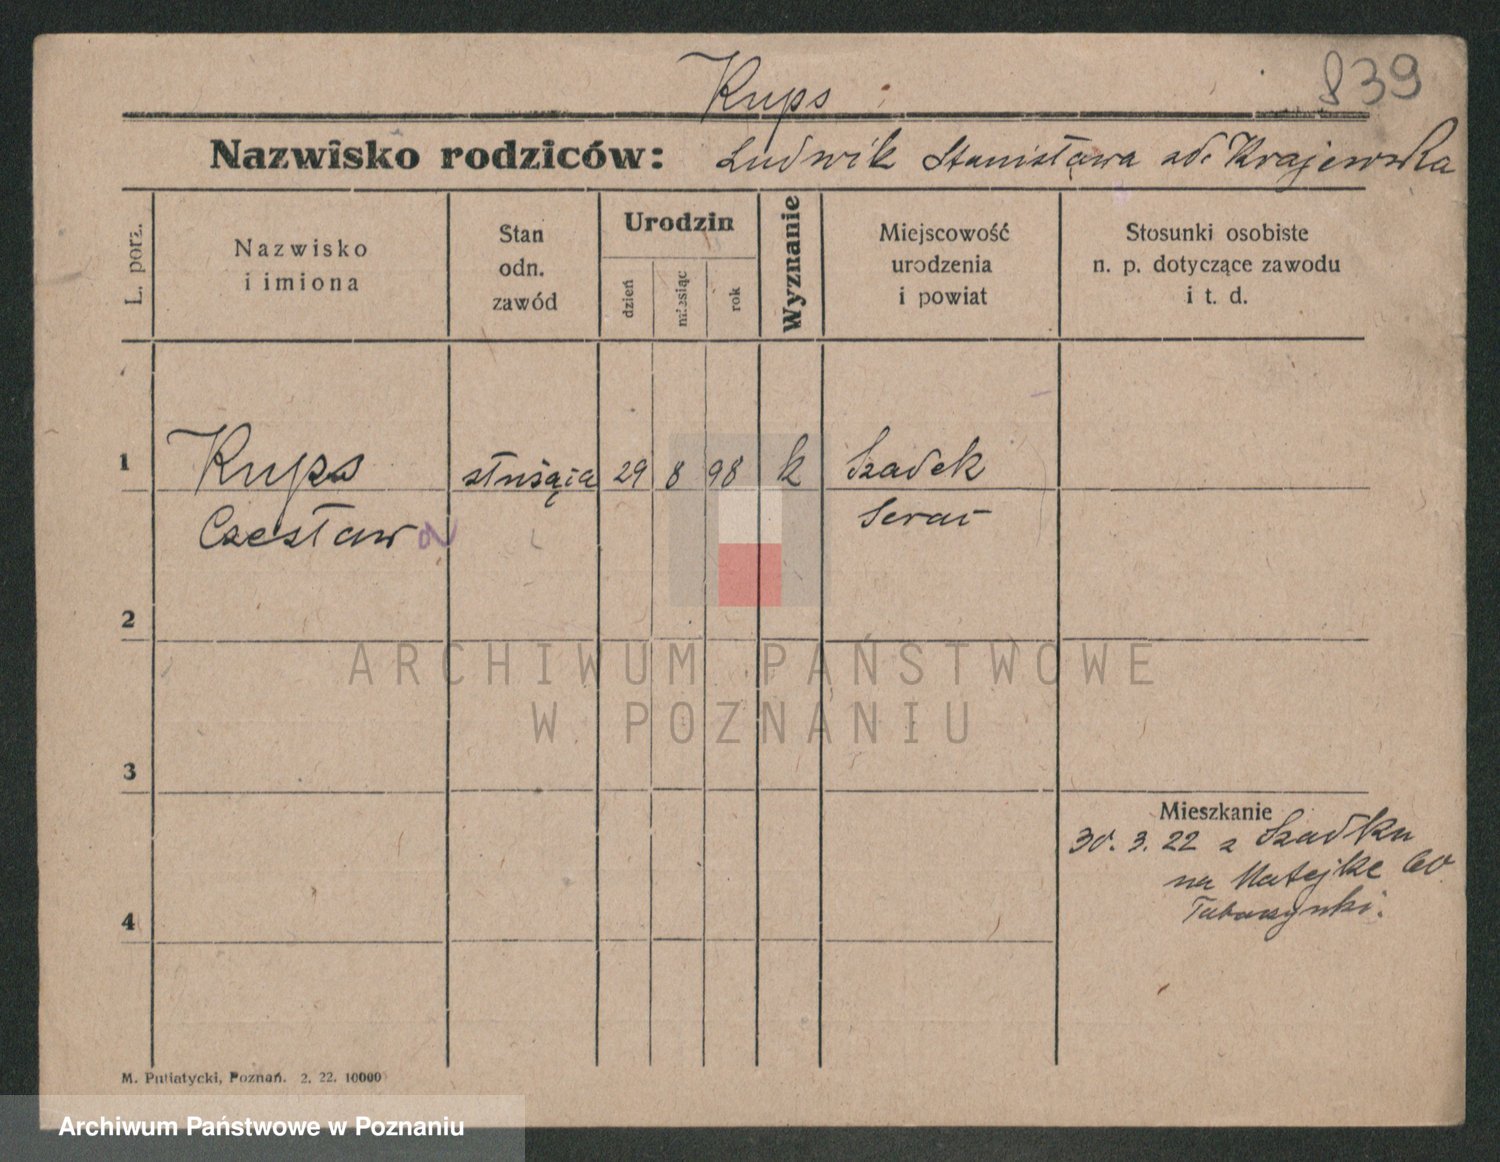 Kups
839
Nazwisko rodziców: Ludwik Stanisława od. Krajewska
L. porz.
Nazwisko
i imiona
Stan
odn.
zawód
Urodzin
dzień
miesiąc
rok
Wyznanie
Miejscowość
urodzenia
i powiat
Stosunki osobiste
n. p. dotyczące zawodu
i t. d.
1 Kups służąca 29 8 98 k Szadek
Czesława
2
3
4
Mieszkanie
30. 3. 22 z Szadku
na Matejke 60
ARCHIWUM PAŃSTWOWE
W POZNANIU
M. Putiatycki, Poznań. 2. 22. 10000
Archiwum Państwowe w Poznaniu